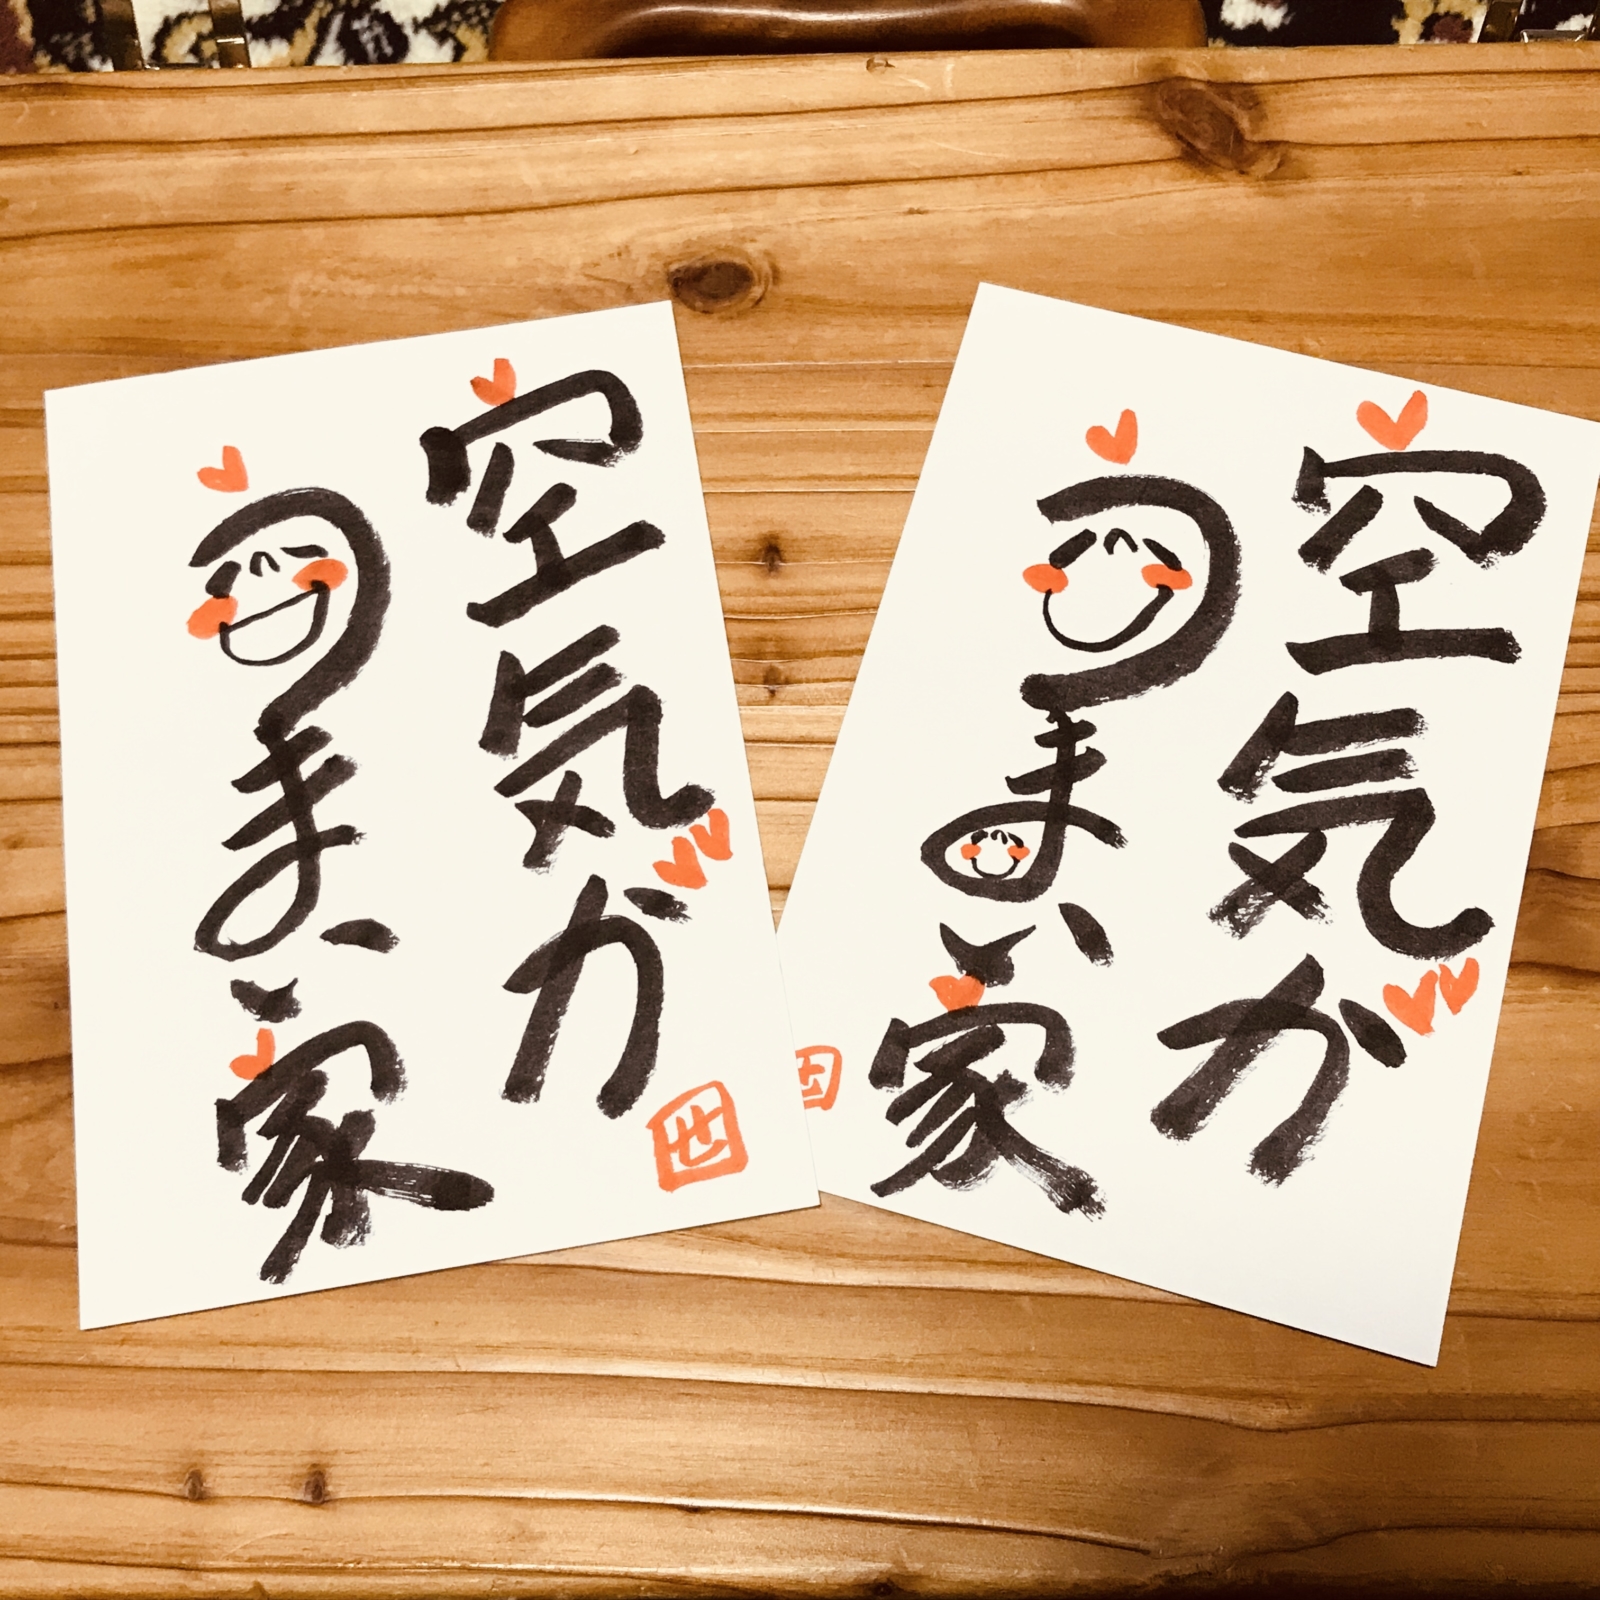 空気が
うまい家
世
空気が
うまい家